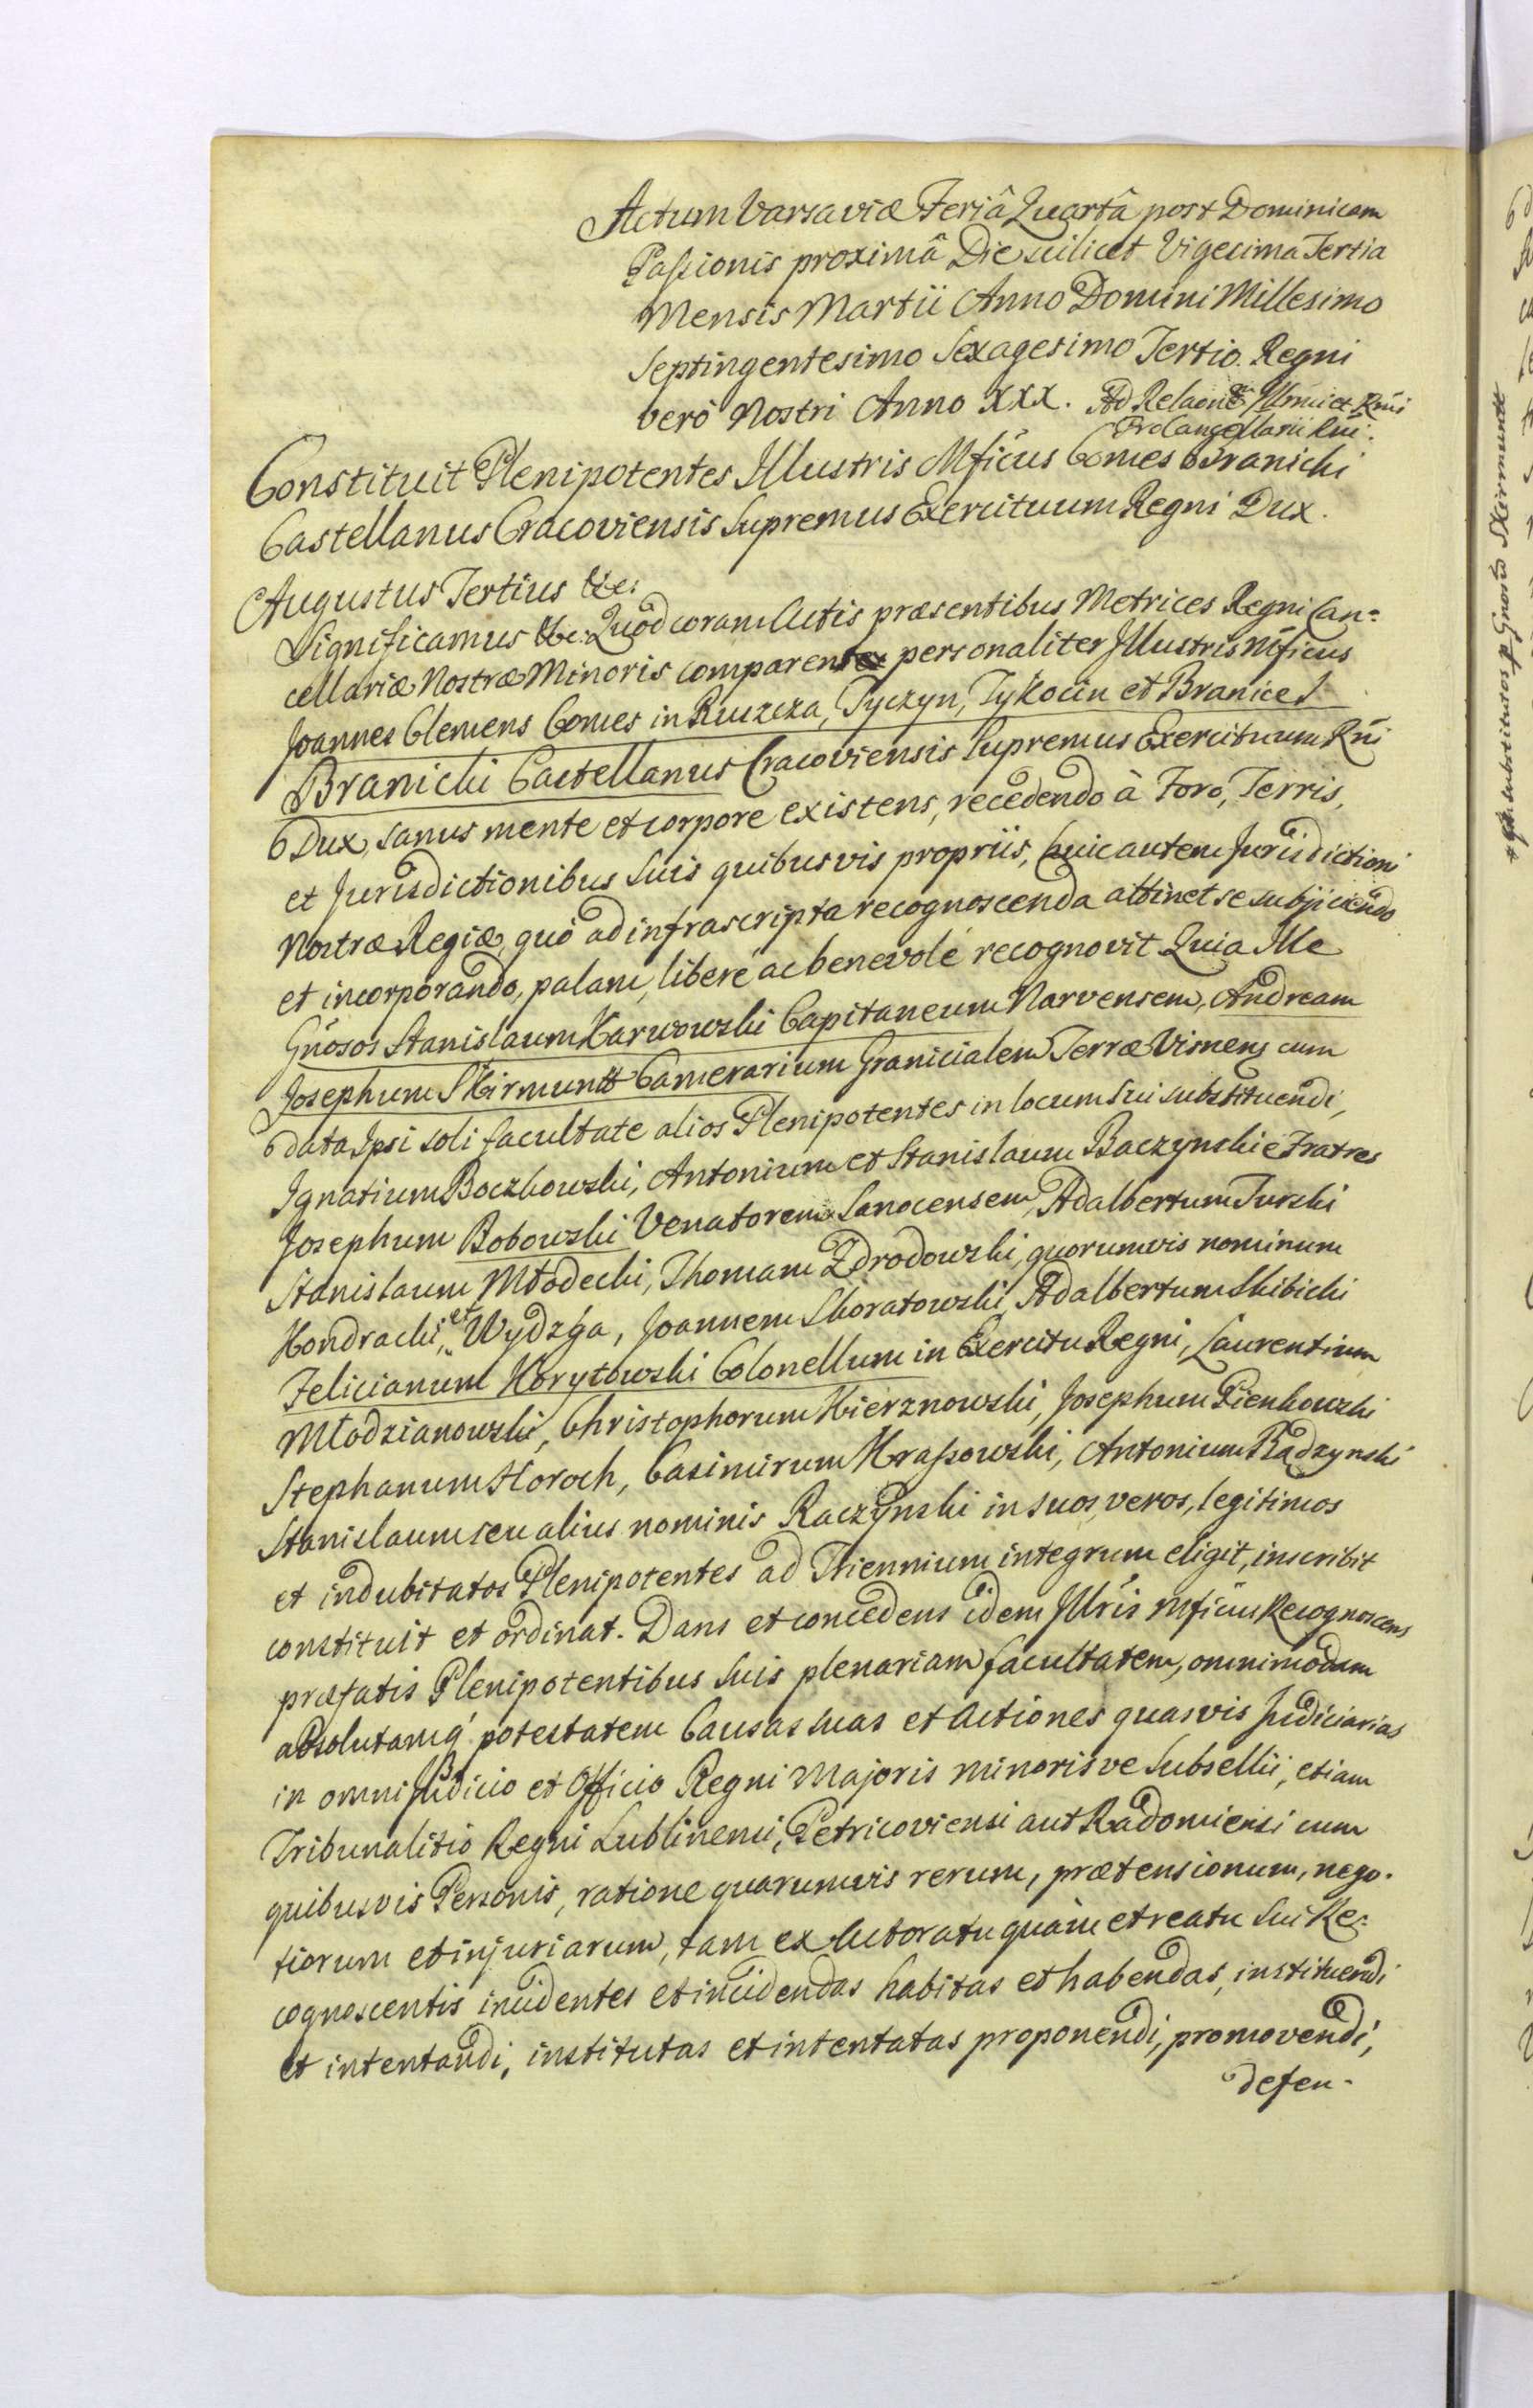 Actum Varsaviæ Feriâ Quartâ post Dominicam
Passionis proximâ Die scilicet Vigesima Tertia
Mensis Martii Anno Domini Millesimo
Septingentesimo Sexagesimo Tertio. Regni
verò Nostri Anno XXX. Ad Relaone Illmi et Rmi
ProCancellarii Rni.
Constituit Plenipotentes Illustris Mficus Comes Branicki
Castellanus Cracoviensis Supremus Exercituum Regni Dux.
Augustus Tertius &c:
Significamus &c: Quòd coram Actis præsentibus Metrices Regni Can=
cellariæ Nostræ Minoris comparens personaliter Illustris Mficus
Joannes Clemens Comes in Ruszcza, Tyczyn, Tykocin et Branice
Branicki Castellanus Cracoviensis Supremus Exercituum Rni
Dux, sanus mente et corpore existens, recedendo à Foro, Terris,
et Jurisdictionibus suis quibusvis propriis, huic autem Jurisdictioni
Nostræ Regiæ, quò ad infrascripta recognoscenda attinet se subjiciendo
et incorporando, palam, liberé ac benevolé recognovit Quia Ille
Gnosos Stanislaum Karwowski Capitaneum Narvensem, Andream
Josephum Skirmuntt Camerarium Granicialem Terræ Visnens cum
data Ipsi soli facultate alios Plenipotentes in locum sui substituendi,
Ignatium Boczkowski, Antonium et Stanislaum Baczynskie Fratres
Josephum Bobowski Venatorem Sanocensem, Adalbertum Turski
Stanislaum Młodecki, Thomam Zdrodowski, quorumvis nominum
Kondracki, et Wydzga, Joannem Skoratowski, Adalbertum Skibicki
Felicianum Korytowski Colonellum in Exercitu Regni, Laurentium
Młodzianowski, Christophorum Kierznowski, Josephum Pienkowski
Stephanum Horoch, Casimirum Krassowski, Antonium Radzynski
Stanislaum seu alius nominis Raczynski in suos, veros, legitimos
et indubitatos Plenipotentes ad Triennium integrum eligit, inscribit
constituit et ordinat. Dans et concedens idem Illris Mficus Recognoscens
præfatis Plenipotentibus suis plenariam facultatem, omnimodam
absolutamq potestatem Causas suas et Actiones quasvis Judiciarias
in omni Judicio et Officio Regni Majoris minorisve Subsellii, etiam
Tribunalitio Regni Lublinensi, Petricoviensi aut Radomiensi cum
quibusvis Personis, ratione quarumvis rerum, prætensionum, nego-
tiorum et injuriarum, tam ex Actoratu quàm et reatu sui Re=
cognoscentis incidentes et incidendas habitas et habendas, instituendi
et intentandi, institutas et intentatas proponendi, promovendi,
defen-
substitutos p Gnosũ Skirmuntt